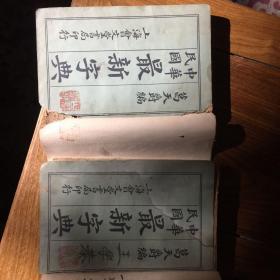 中華民國
最新字典
葛天爵編
上海會文堂書局印行
中華民國
最新字典
葛天爵編
上海會文堂書局印行